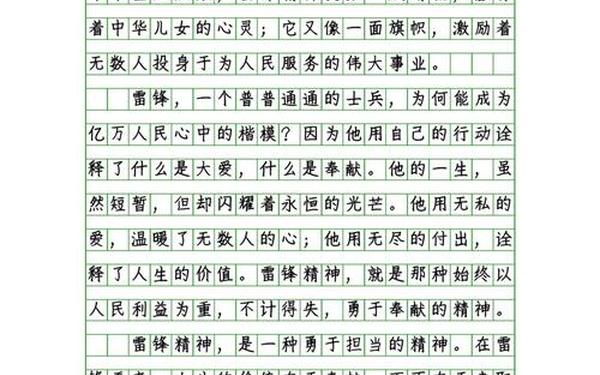 着中华儿女的心灵；它又像一面旗帜，激励着
无数人投身于为人民服务的伟大事业。
雷锋，一个普普通通的士兵，为何能成为
亿万人民心中的楷模？因为他用自己的行动诠
释了什么是大爱，什么是奉献。他的一生，虽
然短暂，但却闪耀着永恒的光芒。他用无私的
爱，温暖了无数人的心；他用无尽的付出，诠
释了人生的价值。雷锋精神，就是那种始终以
人民利益为重，不计得失，勇于奉献的精神。
雷锋精神，是一种勇于担当的精神。在雷